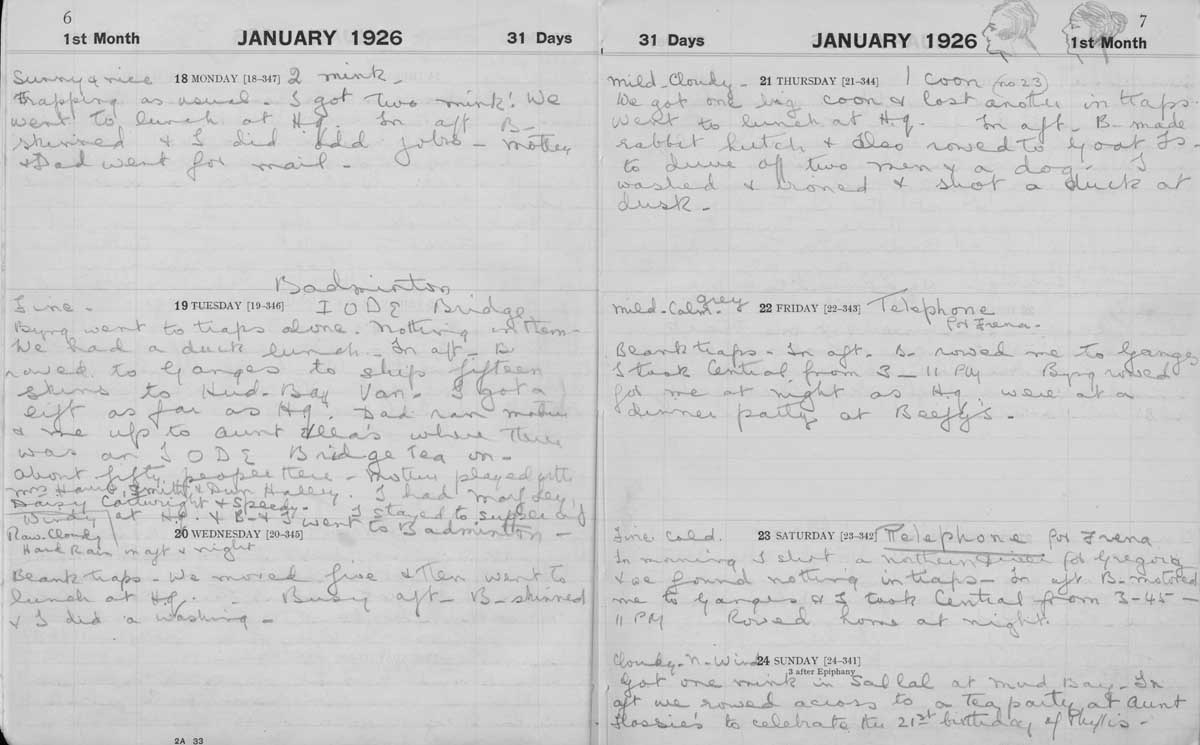 6
1st Month JANUARY 1926 31 Days
Sunny & nice 18 MONDAY [18-347] 2 mink -
Trapping as usual - I got two mink! We
went to lunch at H.Q. In aft - B -
skinned & I did odd jobs - Mother
& Dad went for mail -
Badminton
Fine - 19 TUESDAY [19-346] I O D E Bridge
Byng went to traps alone. Nothing in them -
We had a duck lunch - In aft - B
rowed to Ganges to ship fifteen
skins to Hud - Bay Van - I got a
lift as far as H.Q. Dad ran mother
& me up to Aunt where there
was an I O D E Bridge Tea on -
About fifty people there - Mother played with
Mrs Smith & Halley. I had
Daisy Cartwright & Speedy - I stayed to supper
at H.Q. & B - & I went to Badminton -
Windy
Raw. Cloudy 20 WEDNESDAY [20-345]
Hard Rain in aft & night
Blank traps - We moved five & then went to
lunch at H.Q. - Busy aft - B - skinned
& I did a washing -
2A 33
7
31 Days JANUARY 1926 1st Month
Mild - Cloudy - 21 THURSDAY [21-344] 1 coon (no 23)
We got one big coon & lost another in traps
Went to lunch at H.Q. In aft - B - made
rabbit hutch & also rowed to Goat Is -
to drive off two men & a dog - I
washed & ironed & shot a duck at
dusk -
Mild - Calm - grey 22 FRIDAY [22-343] Telephone
for Frena -
Blank traps - In aft - B - rowed me to Ganges
I took Central from 3 - 11 PM Byng rowed
for me at night as H.Q. were at a
dinner party at Beefy's -
Fine Cold. 23 SATURDAY [23-342] Telephone for Frena
In morning I shot a northern diver for Gregory
& we found nothing in traps - In aft B - motored
me to Ganges & I took Central from 3-45 -
11 PM Rowed home at night.
Cloudy - N - Wind 24 SUNDAY [24-341]
3 after Epiphany
Got one mink in Sallal at Mud Bay - In
aft we rowed across to a tea party at Aunt
Flossie's to celebrate the 21st birthday of Phyllis -